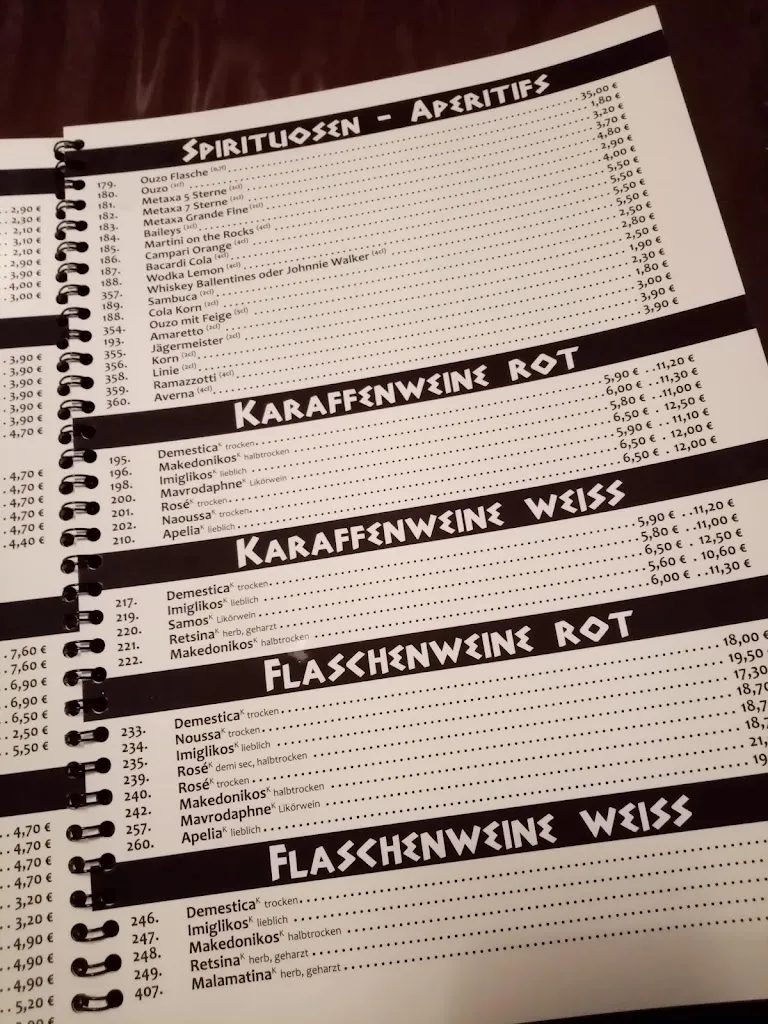 2,90 €
2,30 €
2,10 €
3,10 €
2,10 €
2,90 €
3,90 €
4,00 €
3,00 €
3,90 €
3,90 €
3,90 €
3,90 €
3,90 €
3,90 €
4,70 €
4,70 €
4,70 €
4,70 €
4,70 €
4,70 €
4,40 €
7,60 €
7,60 €
6,90 €
6,90 €
6,50 €
2,50 €
5,50 €
4,70 €
4,70 €
4,70 €
4,70 €
3,20 €
3,20 €
4,90 €
4,90 €
4,90 €
5,20 €
SPIRITUOSEN - APERITIFS
179. Ouzo Flasche (0,7l) 35,00 €
180. Ouzo (2cl) 1,80 €
181. Metaxa 5 Sterne (2cl) 3,20 €
182. Metaxa 7 Sterne (2cl) 3,70 €
183. Metaxa Grande Fine (2cl) 4,80 €
184. Baileys (2cl) 2,90 €
185. Martini on the Rocks (4cl) 4,00 €
186. Campari Orange (4cl) 5,50 €
187. Bacardi Cola (4cl) 5,50 €
188. Wodka Lemon (4cl) 5,50 €
357. Whiskey Ballentines oder Johnnie Walker (4cl) 5,50 €
189. Sambuca (2cl) 2,50 €
188. Cola Korn (2cl) 2,80 €
354. Ouzo mit Feige (5cl) 2,50 €
193. Amaretto (2cl) 1,90 €
355. Jägermeister (2cl) 2,30 €
356. Korn (2cl) 1,80 €
358. Linie (2cl) 3,00 €
359. Ramazzotti (4cl) 3,90 €
360. Averna (4cl) 3,90 €
KARAFFENWEINE ROT
195. Demestica K trocken 5,90 € 11,20 €
196. Makedonikos K halbtrocken 6,00 € 11,30 €
198. Imiglikos K lieblich 5,80 € 11,00 €
200. Mavrodaphne K Likörwein 6,50 € 12,50 €
201. Rosé K trocken 5,90 € 11,10 €
202. Naoussa K trocken 6,50 € 12,00 €
210. Apelia K lieblich 6,50 € 12,00 €
KARAFFENWEINE WEISS
217. Demestica K trocken 5,90 € 11,20 €
219. Imiglikos K lieblich 5,80 € 11,00 €
220. Samos K Likörwein 6,50 € 12,50 €
221. Retsina K herb, geharzt 5,60 € 10,60 €
222. Makedonikos K halbtrocken 6,00 € 11,30 €
FLASCHENWEINE ROT
233. Demestica K trocken 18,00 €
234. Noussa K trocken 19,50
235. Imiglikos K lieblich 17,30
239. Rosé K demi sec, halbtrocken 18,70
240. Rosé K trocken 18,7
242. Makedonikos K halbtrocken 18,7
257. Mavrodaphne K Likörwein 21,
260. Apelia K lieblich 19
FLASCHENWEINE WEISS
246. Demestica K trocken
247. Imiglikos K lieblich
248. Makedonikos K halbtrocken
249. Retsina K herb, geharzt
407. Malamatina K herb, geharzt